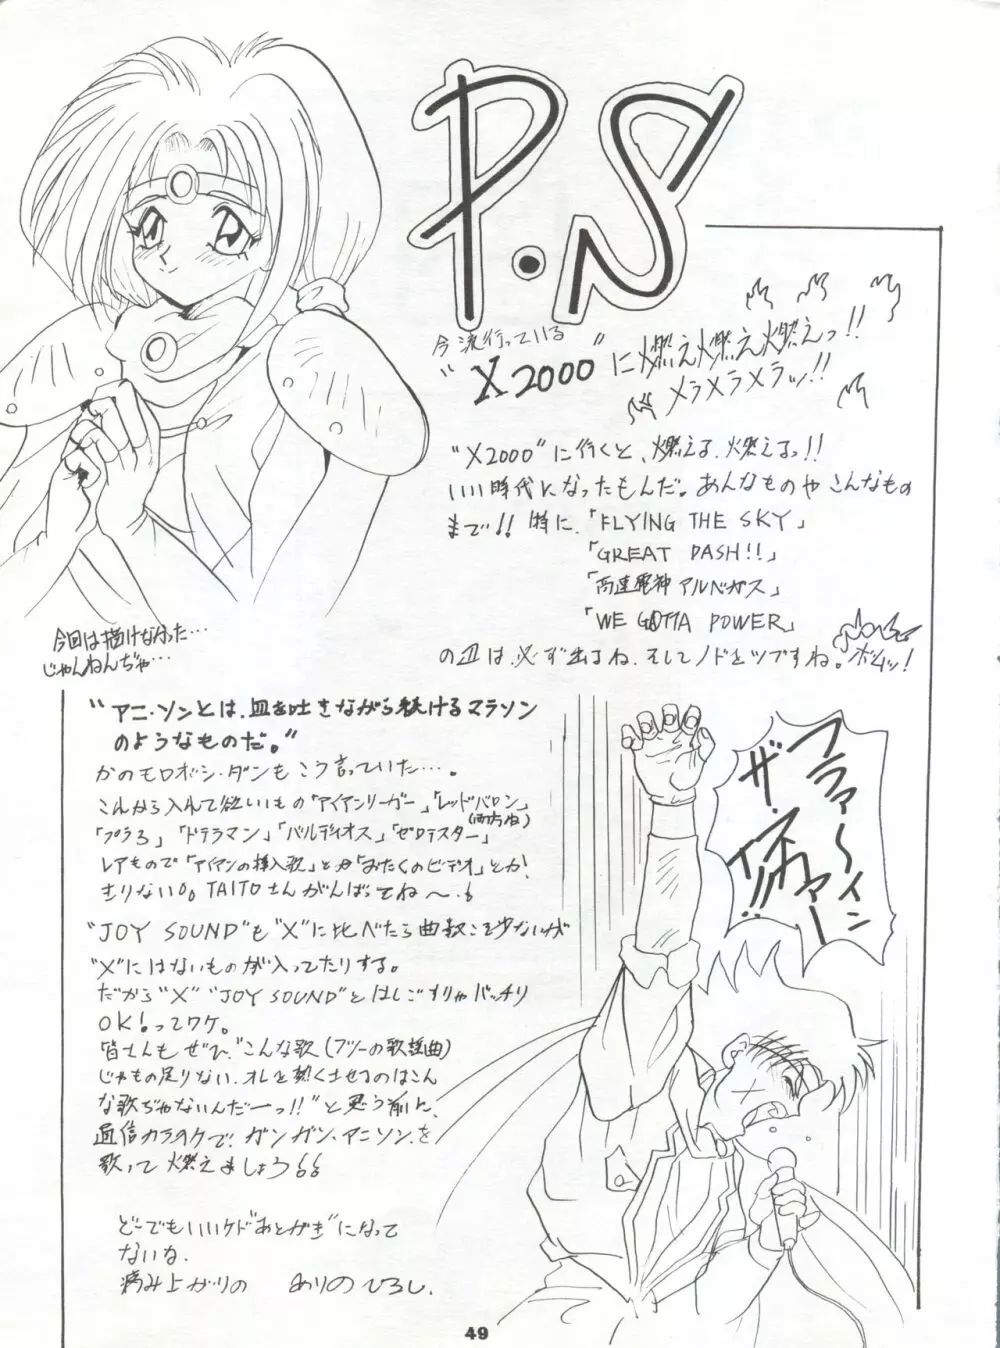 P.S
今流行っている
"X2000"に燃え燃え燃えっ!!
メラメラメラッ!!
"X2000"に行くと、燃える、燃えるっ!!
いい時代になったもんだ。あんなものや こんなもの
まで!! 特に、「FLYING THE SKY」
「GREAT DASH!!」
「高速電神アルベガス」
「WE GOTTA POWER」
の皿は必ず出るね。そしてノドとツブすね。ボムッ!
今回は描けなかった…
じゃんねんぢゃ…
"アニ・ソンとは、血を吐きながら続けるマラソン
のようなものだ。"
かのモロボシ・ダンもこう言っていた…。
こんから入れて欲しいもの「アイアンリーガー」「レッドバロン」
(両方ね)
「プラ3」「ドテラマン」「バルディオス」「ゼロテスター」
レアもので「アイアンの挿入歌」とか「おたくのビデオ」とか!
きりない。TAITOさんがんばってね〜。
"JOY SOUND"も"X"に比べたら曲数こそ少ないが
"X"にはないものが入ってたりする。
だから"X" "JOY SOUND"とはしごすりゃバッチリ
OK!ってワケ。
皆さんもぜひ、"こんな歌(フツーの歌謡曲)
じゃもの足りない、オレを熱くさせるのはこん
な歌ぢゃないんだーっ!!"と思う前に、
通信カラオケで、ガンガン、アニソンを
歌って燃えましょう
ファ〜イン
ザ・
スカァー
イ!!
どーでもいいけど"あとがき"になって
ないな。
病み上がりの ありのひろし.
49